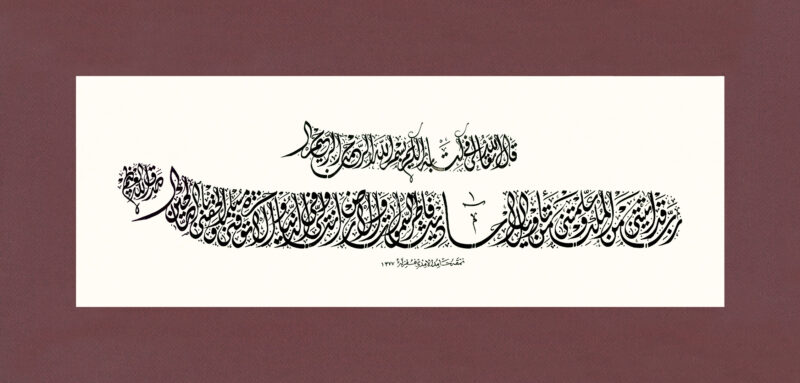 قال الله تعالى في كتابه الكريم بسم الله الرحمن الرحيم
رب قد آتيتني من الملك وعلمتني من تأويل الأحاديث فاطر السموات والأرض أنت وليي في الدنيا والآخرة توفني مسلما وألحقني بالصالحين
صدق الله العظيم
نمقه حامد الآمدي غفر له